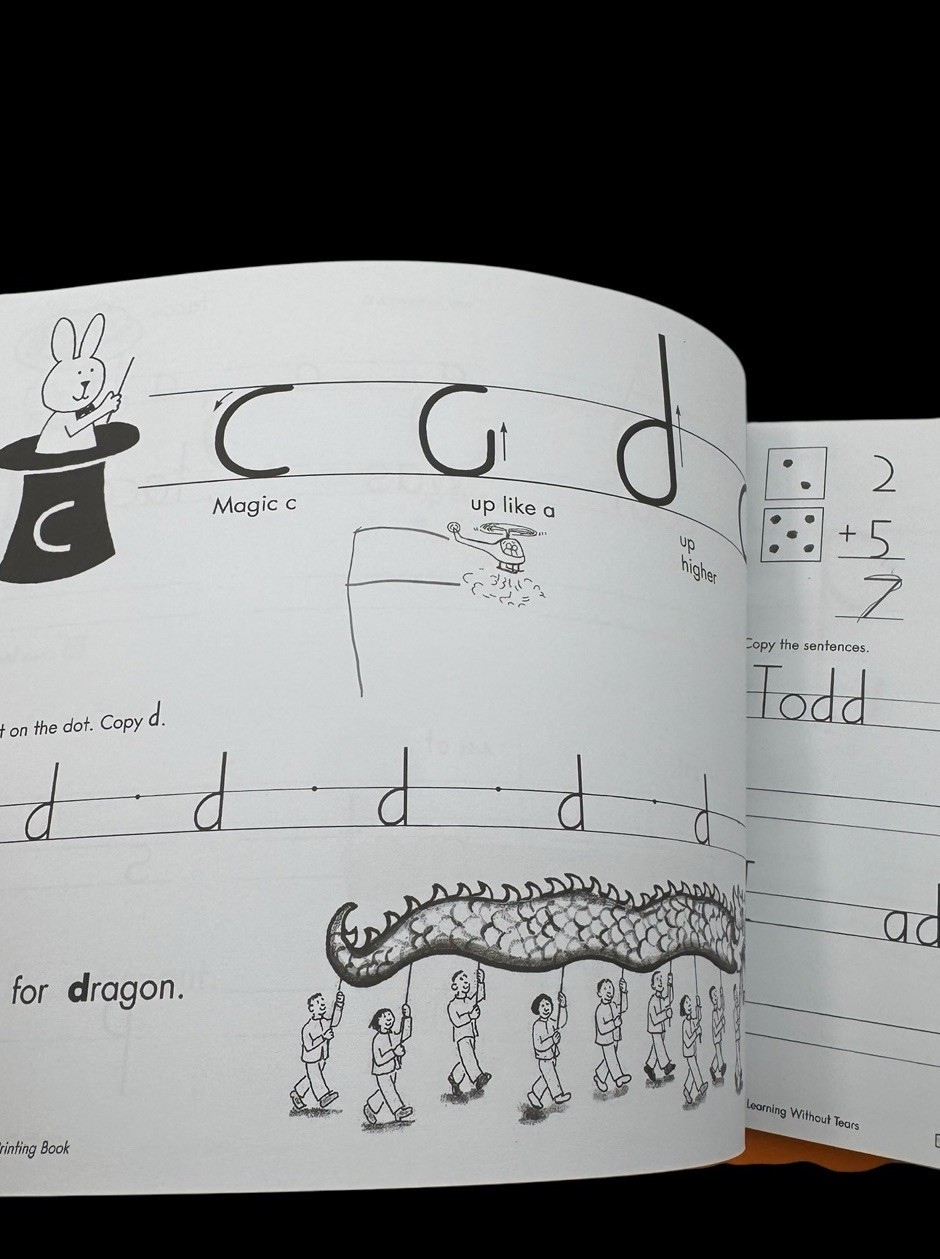 c
Magic c
up like a
d
up
higher
t on the dot. Copy d.
d d d d d
for dragon.
rinting Book
2
+ 5
7
Copy the sentences.
Todd
ad
Learning Without Tears